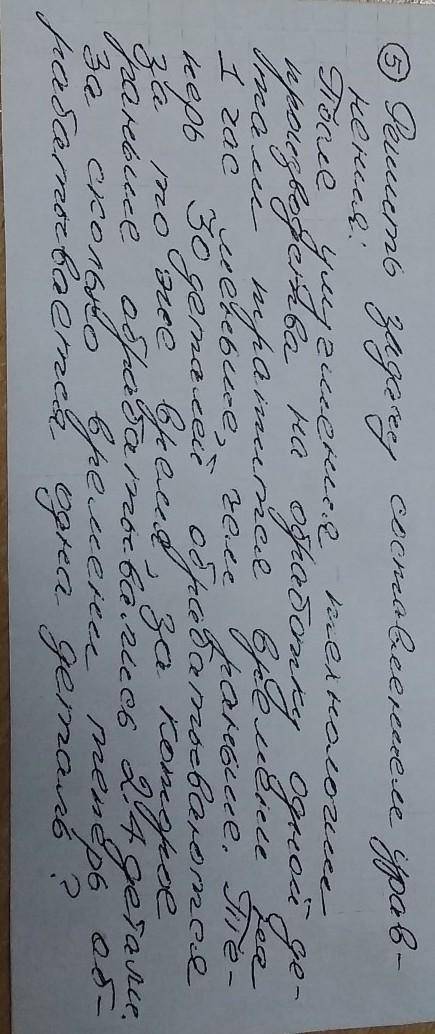 ⑤ Решить задачу составлением урав-
нения:
После улучшения технологии
производства на обработку одной де-
тали тратится времени на
1 час меньше, чем раньше. Те-
перь 30 деталей обрабатываются
за то же время, за которое
раньше обрабатывались 24 детали.
За сколько времени теперь об-
рабатывается одна деталь?